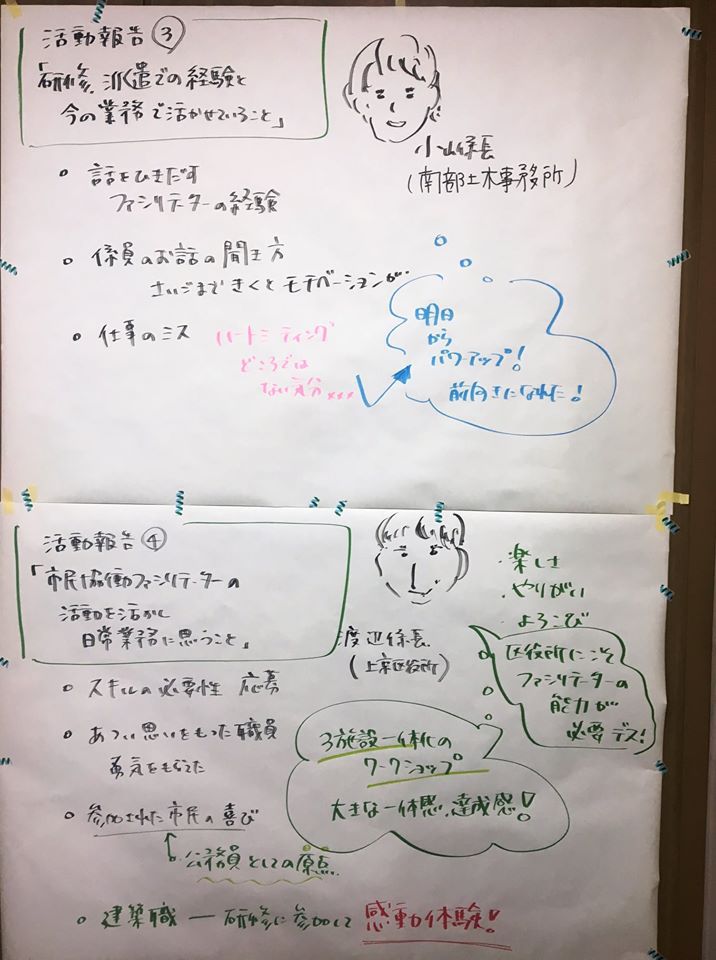 活動報告③
「研修、派遣での経験と
今の業務で活かせていること」
小山係長
(南部土木事務所)
。話をひきだす
ファシリテーターの経験
。係員のお話の聞き方
さいごまできくとモチベーションが..
。仕事のミス
ハートミーティング
どころでは
ない気分...
明日
から
パワーアップ!
前向きになれた!
活動報告④
「市民協働ファシリテーターの
活動を活かし
日常業務に思うこと」
渡辺係長
(上京区役所)
・楽しさ
・やりがい
・よろこび
区役所にこそ
ファシリテーターの
能力が
必要デス!
。スキルの必要性 応募
。あつい思いをもった職員
勇気をもらえた
3施設一体化の
ワークショップ
大きな一体感、達成感!
。参加された市民の喜び
公務員としての原点...
。建築職 ― 研修に参加して 感動体験!